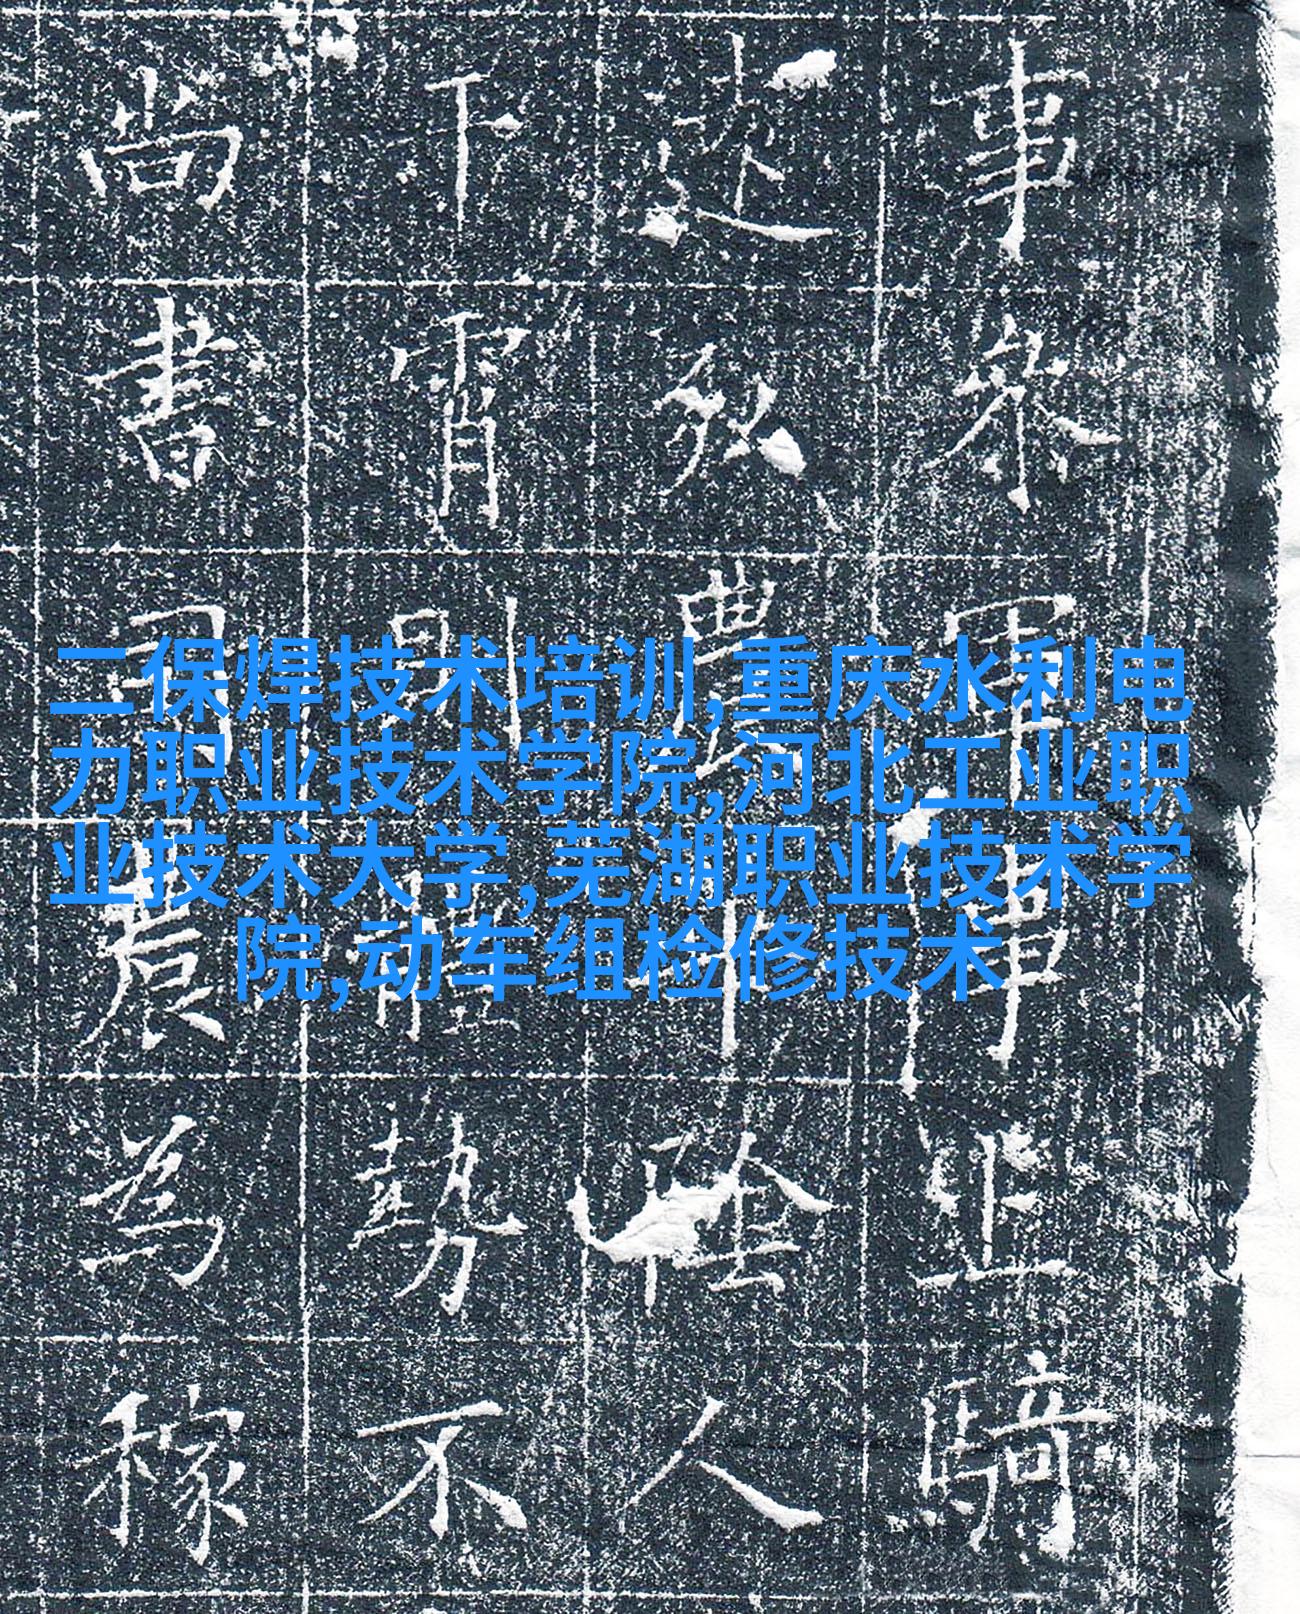 二保焊技术培训,重庆水利电
力职业技术学院,河北工业职
业技术大学,芜湖职业技术学
院,动车组检修技术
事叅軍事上騎
弘農華陰人
下霄則體勢不
尚書司農為稼